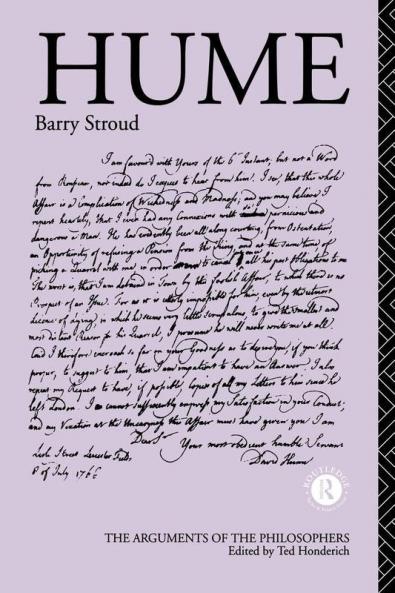 HUME
Barry Stroud
I am favord with Yours of the 6th Instant, but not a Word
from nor indeed do I expect to hear from him. I see, that this whole
Affair is a Complication of Wickedness and Madness; and you may believe I
repent heartily, that I ever had any Connexions with so pernicious and
dangerous a Man. He has evidently been all along courting, from Ostentation,
an Opportunity of refusing a Pension from the King, and at the same time of
picking a Quarrel with me, in order to cancel all his past Obligations to me
The worst is, that I am detained in Town by this foolish Affair, to which there is no
Prospect of an End. For as it is utterly impossible for him, even by the utmost
Licence of in which he seems very little scrupulous, to give the smallest and
most distant Reason for his Quarrel, I presume he will never write me at all.
and I therefore encroach so far on your Goodness as to if you think
proper, to suggest to him, that I am impatient to have an Answer. I also
repeat my Request to have, if possible, Copies of all my Letters to him since he
left London. I cannot sufficiently express my Satisfaction in your Conduct;
and my Vexation at the this Affair must have given you I am
Dear Sir
Your most obedient humble Servant
David Hume
Lisle Street Leicester Fields
8 of July 1766
ROUTLEDGE
R
THE ARGUMENTS OF THE PHILOSOPHERS
Edited by Ted Honderich